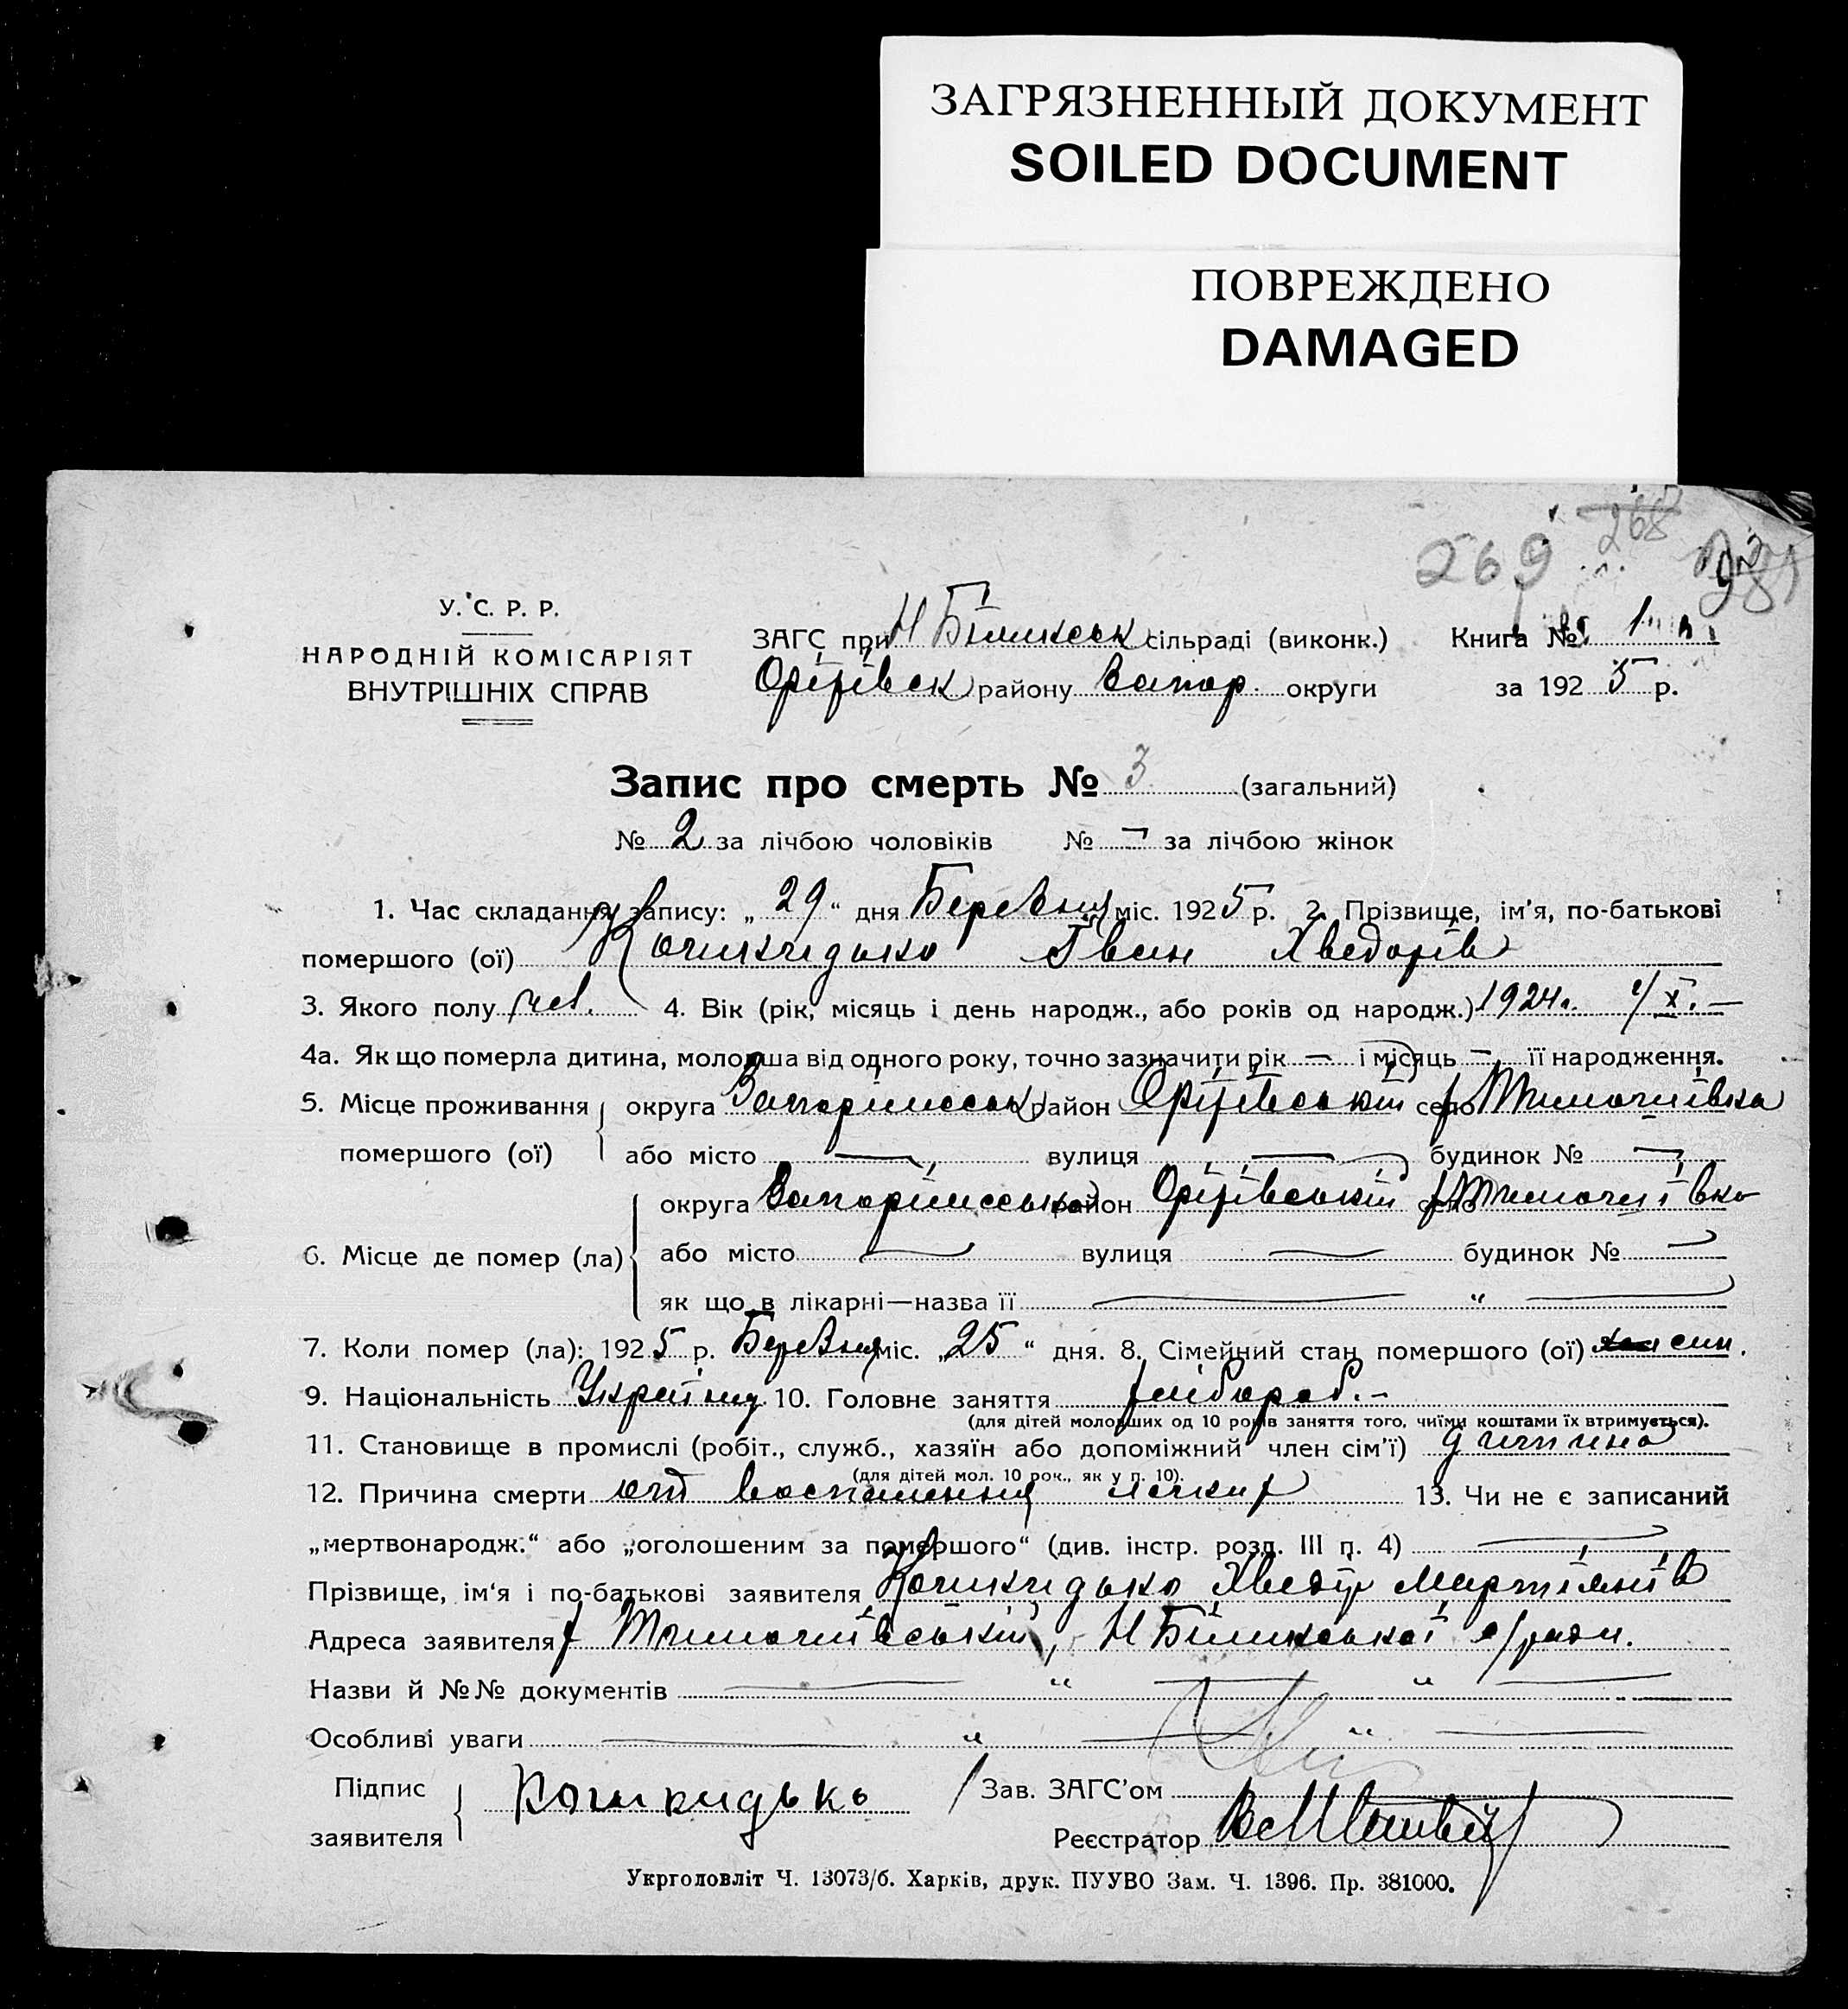 ЗАГРЯЗНЕННЫЙ ДОКУМЕНТ
SOILED DOCUMENT
ПОВРЕЖДЕНО
DAMAGED
269 268
У. С. Р. Р.
НАРОДНІЙ КОМІСАРІЯТ
ВНУТРІШНІХ СПРАВ
ЗАГС при сільраді (виконк.) Книга № 1
Оріхівськ району Запор. округи за 1925 р.
Запис про смерть № 3 (загальний)
№ 2 за лічбою чоловіків № — за лічбою жінок
1. Час складання запису: „29“ дня Березня міс. 1925 р. 2. Прізвище, ім'я, по-батькові
помершого (ої) Іван Хведорів
3. Якого полу чол. 4. Вік (рік, місяць і день народж., або років од народж.) 1924
4а. Як що померла дитина, молодша від одного року, точно зазначити рік — і місяць — її народження.
5. Місце проживання помершого (ої) округа Запоріжська район Оріхівський село
або місто — вулиця — будинок № —
6. Місце де помер (ла) округа Запоріжська район Оріхівський село
або місто — вулиця — будинок № —
як що в лікарні—назва її — „ —
7. Коли помер (ла): 1925 р. Березня міс. „25“ дня. 8. Сімейний стан помершого (ої) син.
9. Національність 10. Головне заняття хлібороб.-
(для дітей молодших од 10 років заняття того, чиїми коштами їх втримується).
11. Становище в промислі (робіт., служб., хазяїн або допоміжний член сім'ї) дитина
(для дітей мол. 10 рок., як у п. 10).
12. Причина смерти от воспалення 13. Чи не є записаний
„мертвонародж.“ або „оголошеним за помершого“ (див. інстр. розд. III п. 4) —
Прізвище, ім'я і по-батькові заявителя Хведір
Адреса заявителя с/ради.
Назви й №№ документів — „ — „ —
Особливі уваги — „ — „ —
Підпис заявителя
Зав. ЗАГС'ом
Реєстратор
Укрголовліт Ч. 13073/б. Харків, друк. ПУУВО Зам. Ч. 1396. Пр. 381000.